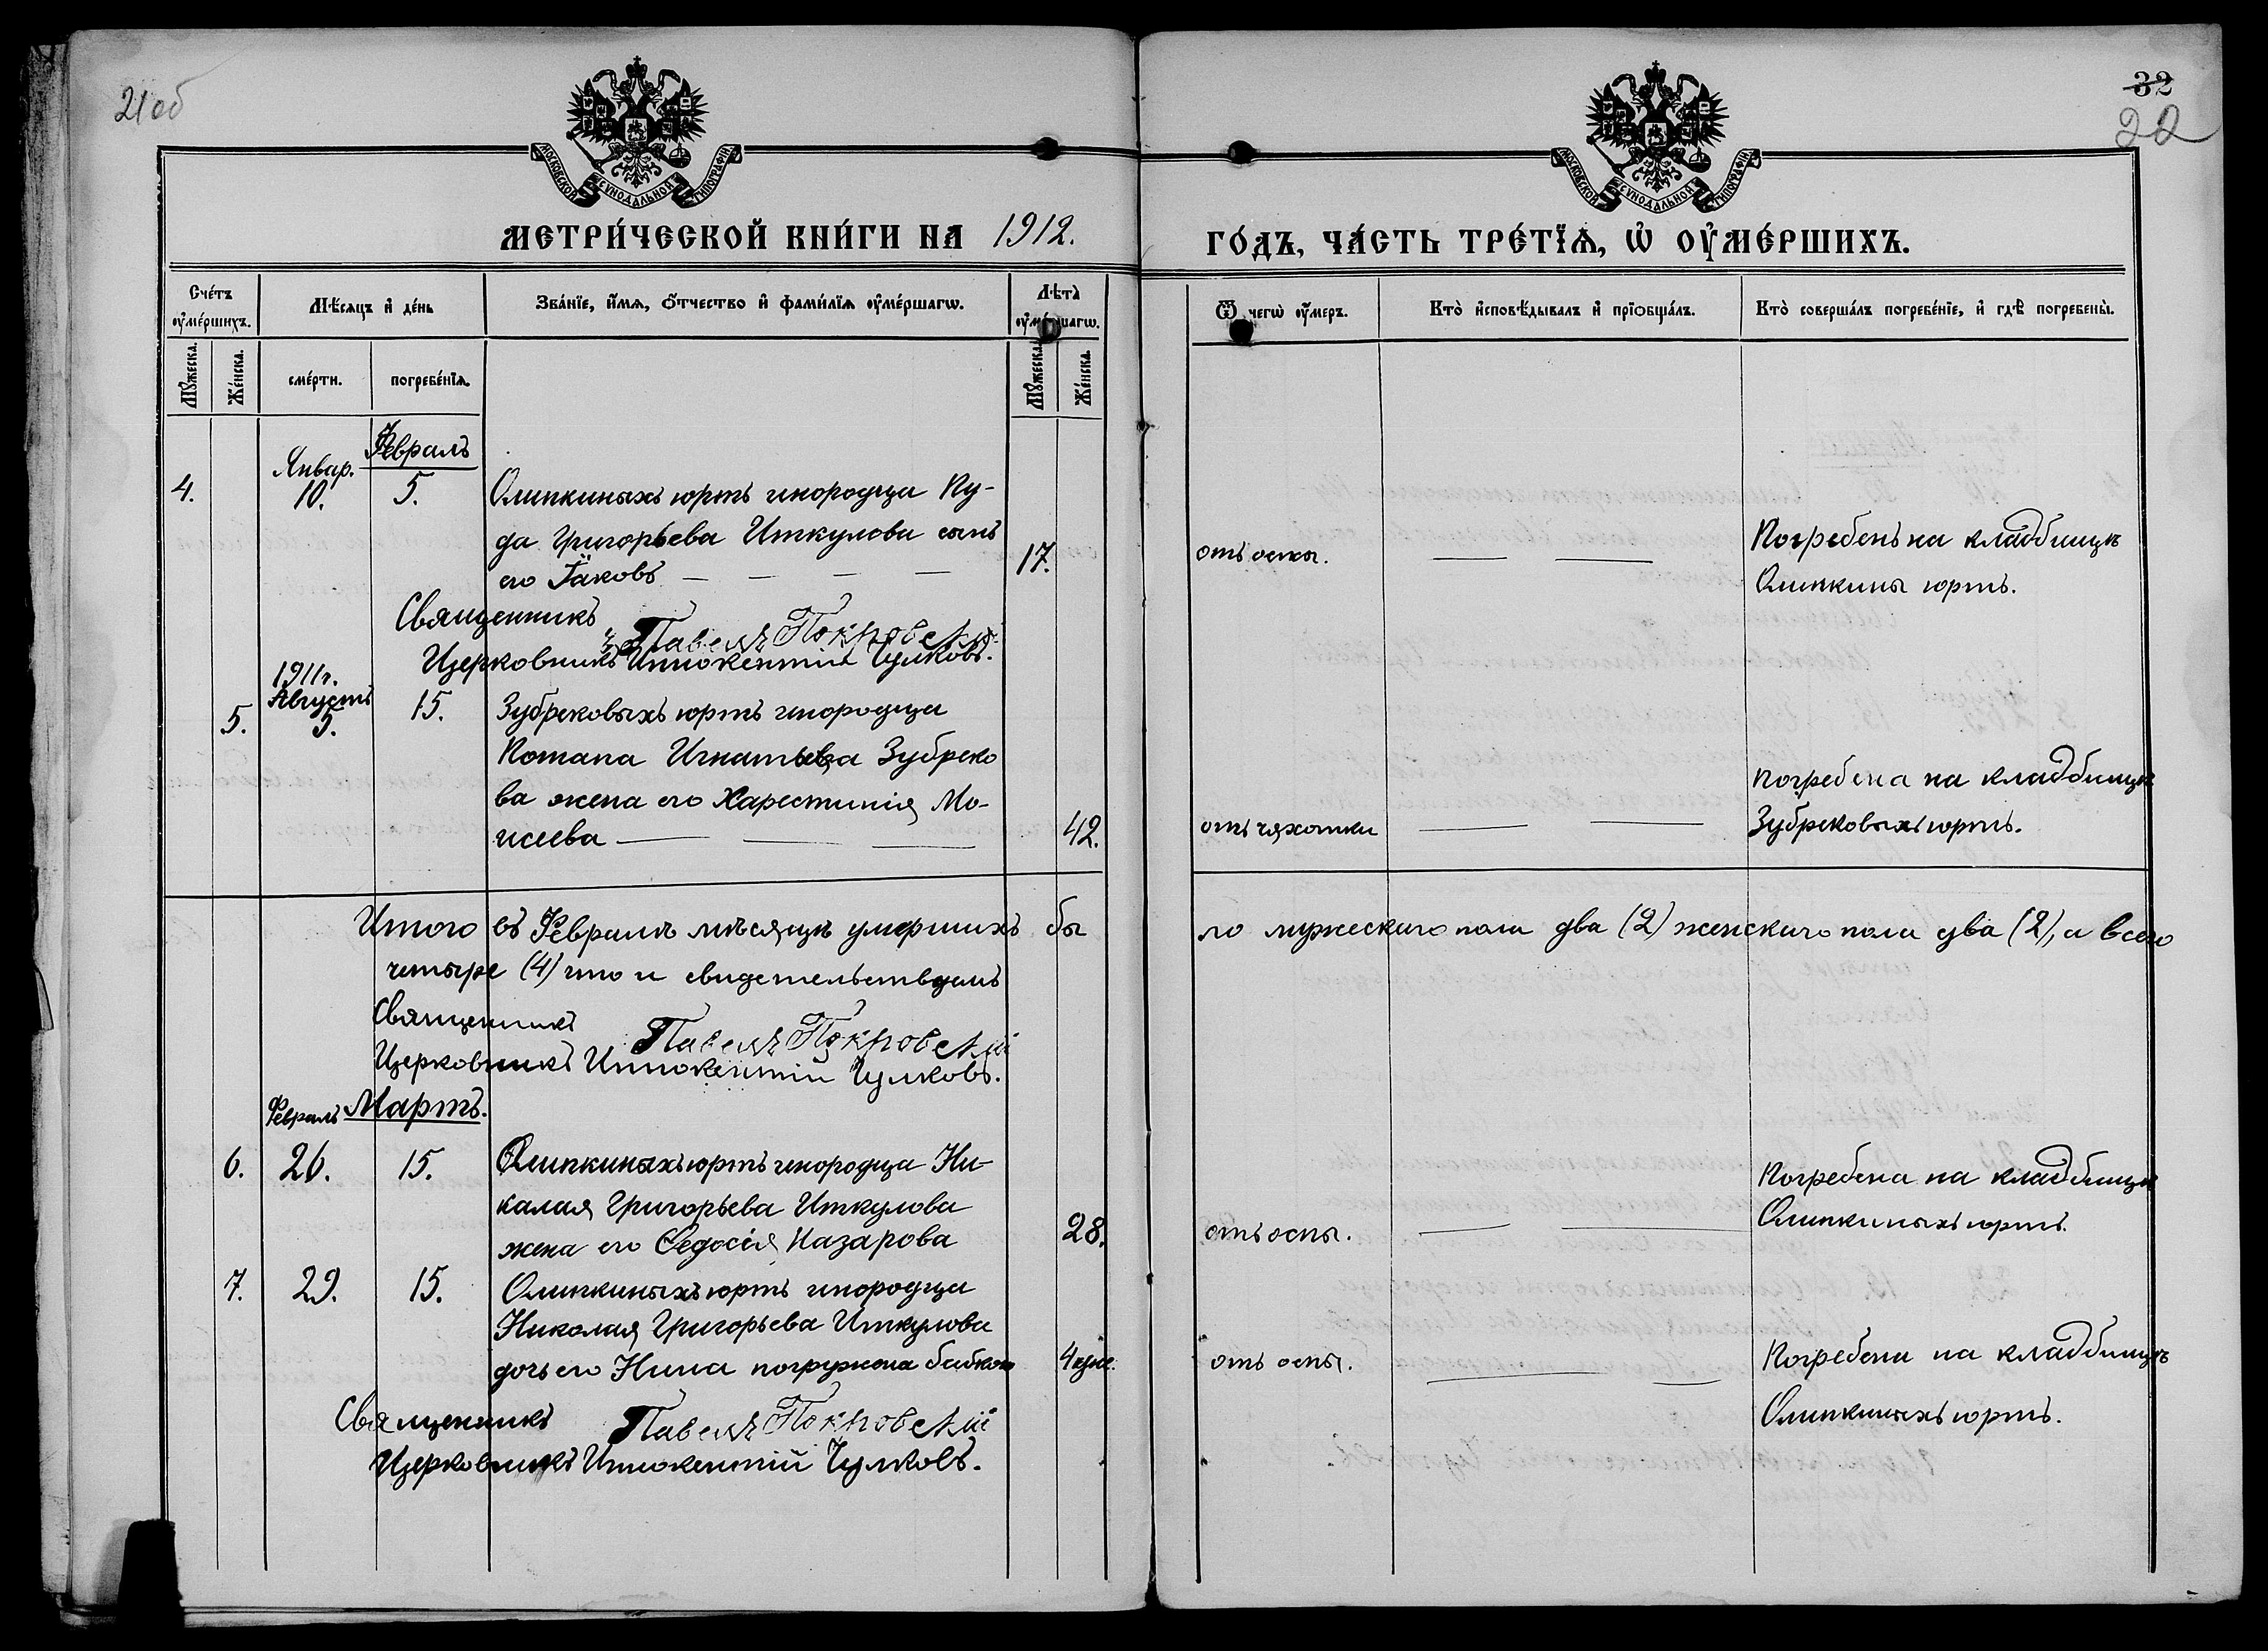 21об
32
22
МОСКОВСКОЙ СѴНОДАЛЬНОЙ ТИПОГРАФІИ
МОСКОВСКОЙ СѴНОДАЛЬНОЙ ТИПОГРАФІИ
МЕТРИ́ЧЕСКОЙ КНИ́ГИ НА 1912. ГО́ДЪ, ЧА́СТЬ ТРЕ́ТЇѦ, Ѡ҆ ОУ҆МЕ́РШИХЪ.
Сче́тъ оу҆ме́ршихъ.
Мѣ́сяцъ и҆ де́нь
Зва́нїе, и҆́мя, ѻ҆́тчество и҆ фами́лїя оу҆ме́ршагѡ.
Лѣта̀ оу҆ме́ршагѡ.
Ѿ чегѡ̀ оу҆́меръ.
Кто̀ и҆сповѣ́дывалъ и҆ прїѻбща́лъ.
Кто̀ соверша́лъ погребе́нїе, и҆ гдѣ̀ погребены̀.
Мꙋ́жеска.
Же́нска.
сме́рти.
погребе́нїя.
Мꙋ́жеска.
Же́нска.
Февраль
Январ.
4. 10. 5. Олипкиныхъ юртъ инородца Ку-
да Григорьева Иткулова сынъ
его Іаковъ 17. отъ оспы. Погребенъ на кладбищѣ
Олипкины юртъ.
Священникъ Павелъ Покровскій
Церковникъ Иннокентій Чулковъ.
1911г.
Августъ
5. 5. 15. Зубрековыхъ юртъ инородца
Потапа Игнатьева Зубреко
ва жена его Харестинія Мо-
исеева 42. отъ чахотки погребена на кладбищѣ
Зубрековыхъ юртъ.
Итого въ Февралѣ мѣсяцѣ умершихъ бы ло мужескаго пола два (2) женскаго пола два (2), а всего
четыре (4) что и свидетельствуемъ
Священникъ Павелъ Покровскій
Церковникъ Иннокентій Чулковъ.
Февраль Мартъ.
6. 26. 15. Олипкиныхъ юртъ инородца Ни-
калая Григорьева Иткулова
жена его Федосія Назарова 28. отъ оспы. Погребена на кладбищѣ
Олипкиныхъ юртъ.
7. 29. 15. Олипкиныхъ юртъ инородца
Николая Григорьева Иткулова
дочь его Нина погружена бабкою отъ оспы. Погребена на кладбищѣ
Олипкиныхъ юртъ.
Священникъ Павелъ Покровскій
Церковникъ Иннокентій Чулковъ.